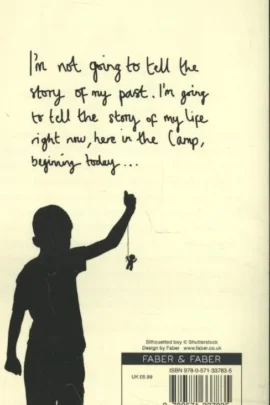 I'm not going to tell the
story of my past. I'm going
to tell the story of my life
right now, here in the Camp,
begining today...
Silhouetted boy © Shutterstock
Design by Faber www.faber.co.uk
FABER & FABER
UK £6.99
ISBN 978-0-571-33783-5